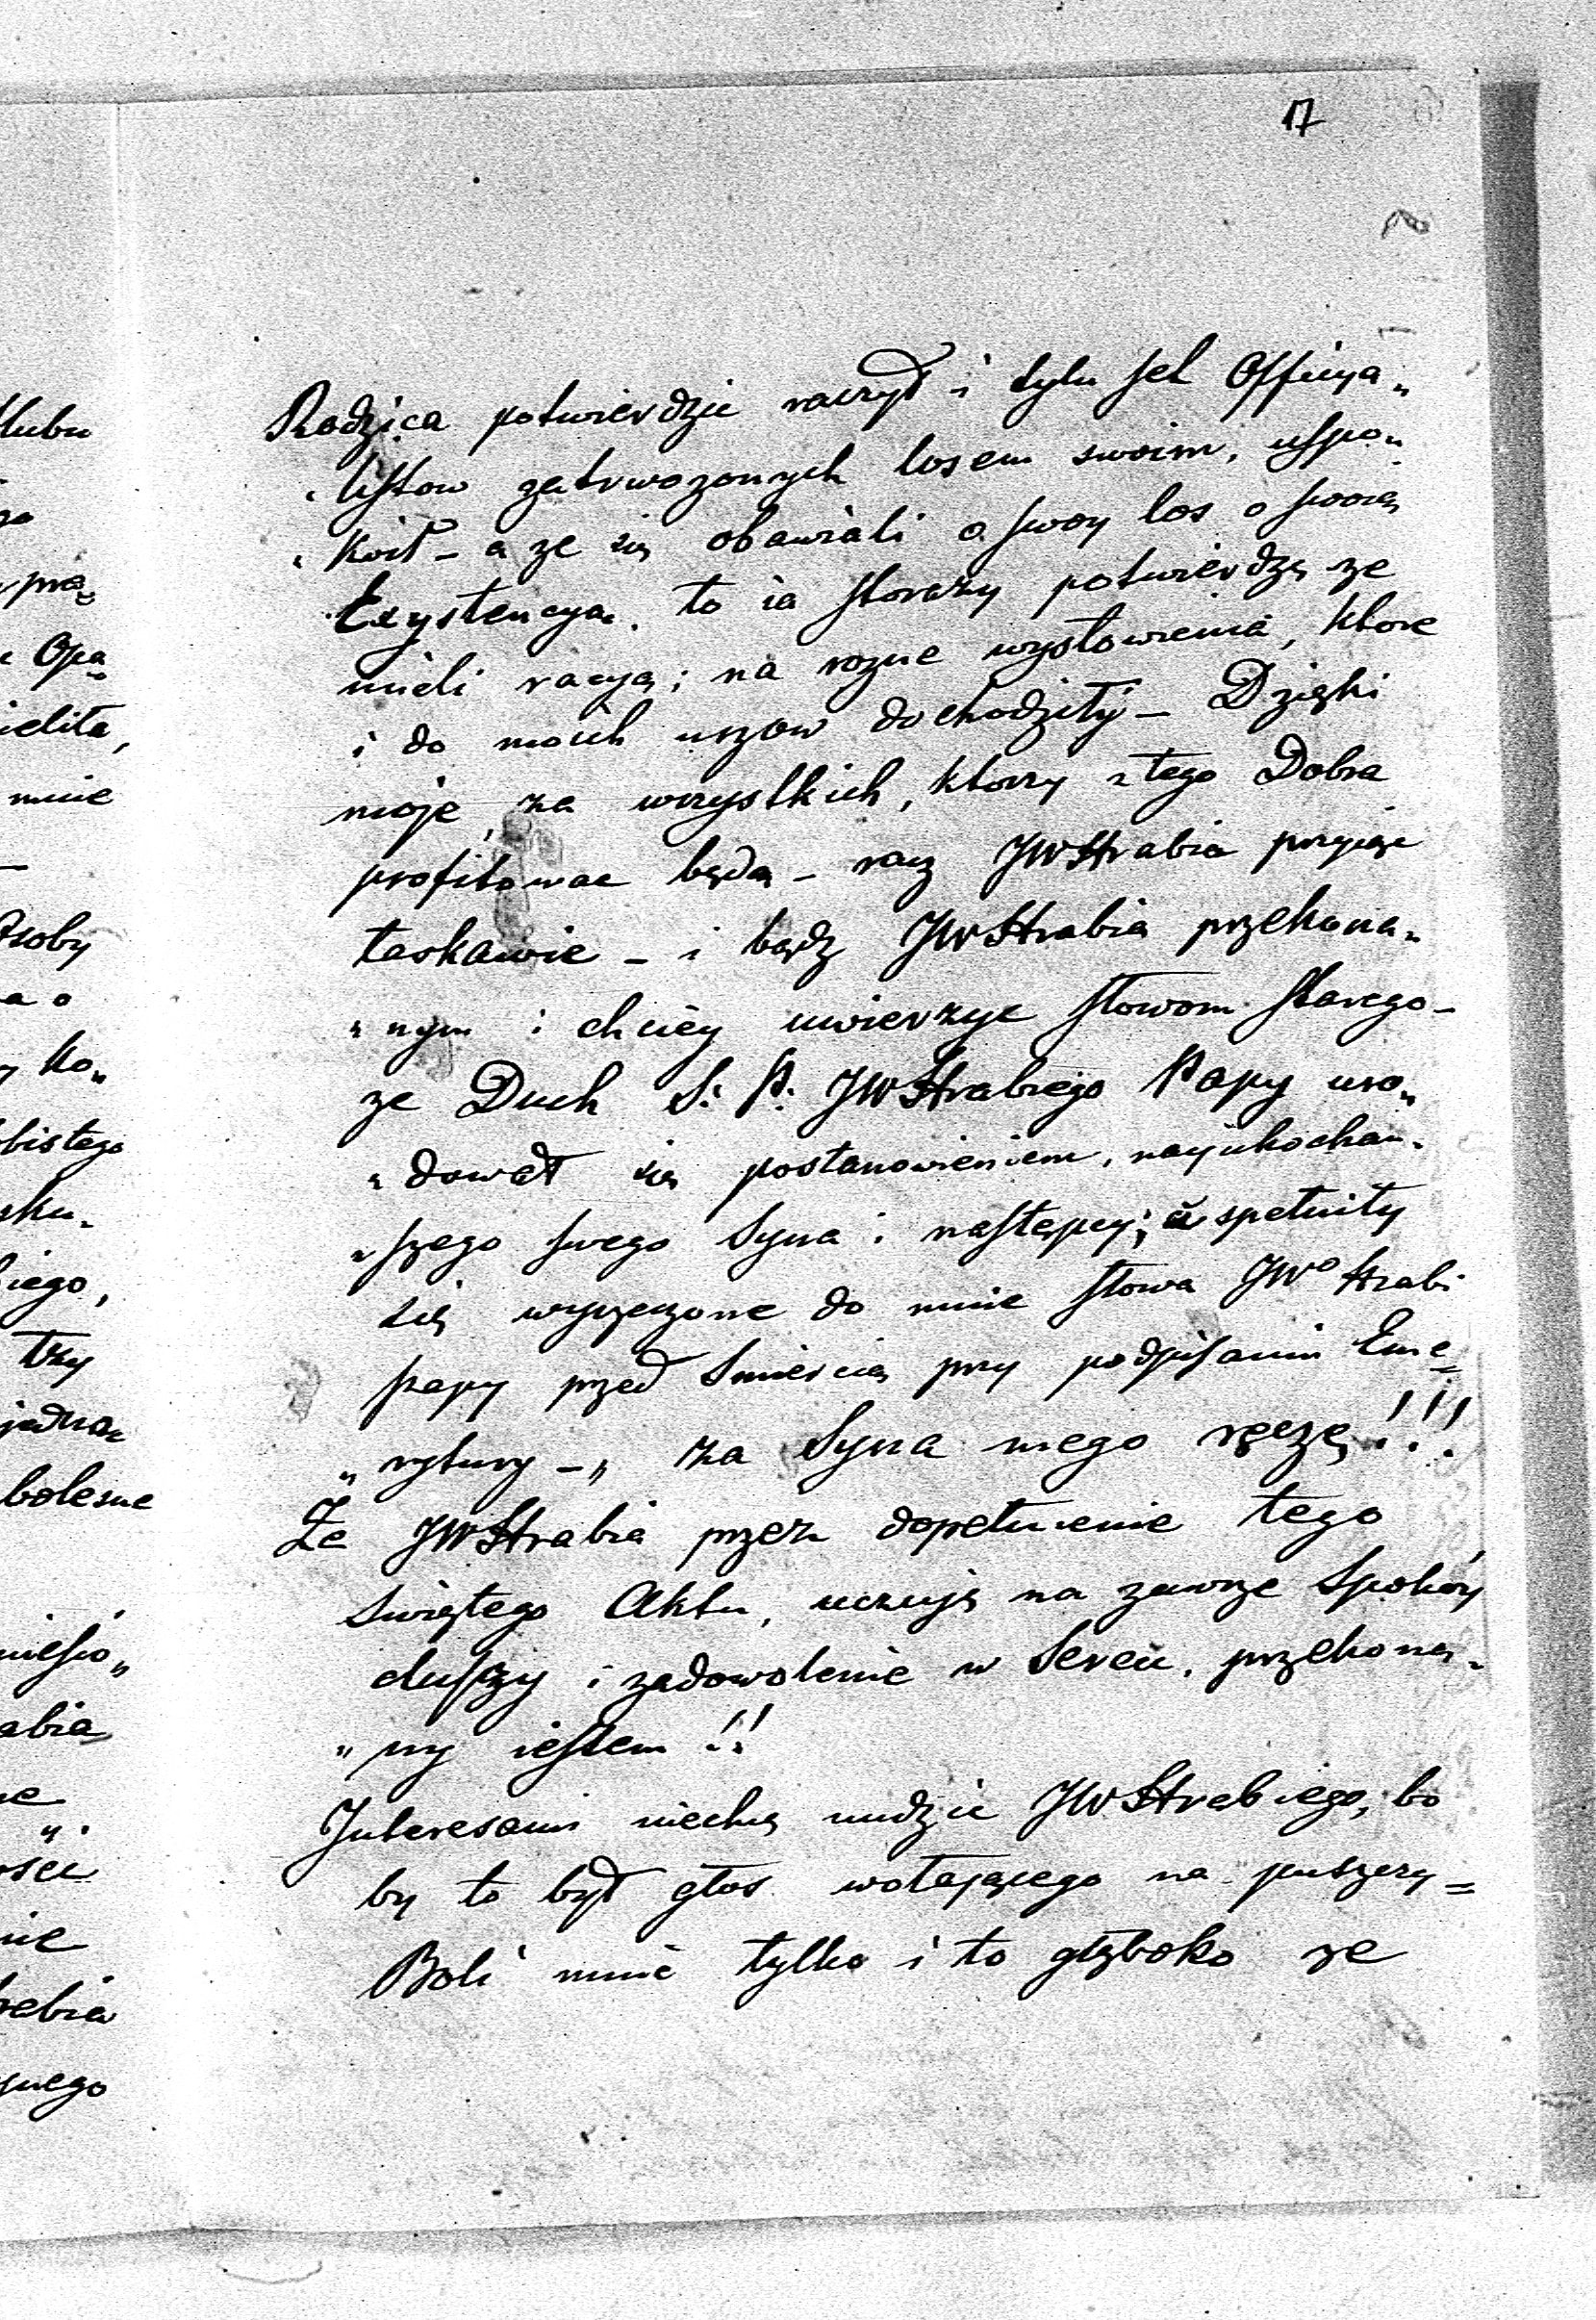 17
Rodzica potwierdzić raczył i tylu set Officya„
„listow zatrwozonych losem swoim, uspo„
„koił – a ze się obawiali o swoy los o swoią
Exystencyą, to ia storazy potwierdzę ze
mieli racyą; na rozne wysłowienia, ktore
i do moich uszow dochodziły – Dzięki
moje, za wszystkich, ktorzy z tego Dobra
profitowac będą – racz JWHrabia przyiąc
łaskawie – i bądz JWHrabia przekona„
„nym i chciéy uwierzyc słowom starego –
ze Duch S: P: JWHrabiego Papy ura„
„dował się postanowieniem, nayukochań„
„szego swego Syna i następcy; a spełniły
się wyrzeczone do mnie słowa JWo Hrabi
papy przed Smiercią przy podpisaniu Eme„
„rytury –„ za Syna mego ręczę!!!
Ze JWHrabia przez dopełnienie tego
Swiętego Aktu, uczuje na zawsze Spokóy
duszy i zadowolenie w Sercu, przekona„
„ny iestem!!
Interesami niechcę nudzic JWHrabiego, bo
by to był głos wołającego na puszczy =
Boli mnie tylko i to głęboko ze
ślubu
Opa„
mnie
Osoby
a o
Ko„
sku„
iego,
trzy
bolesne
abia